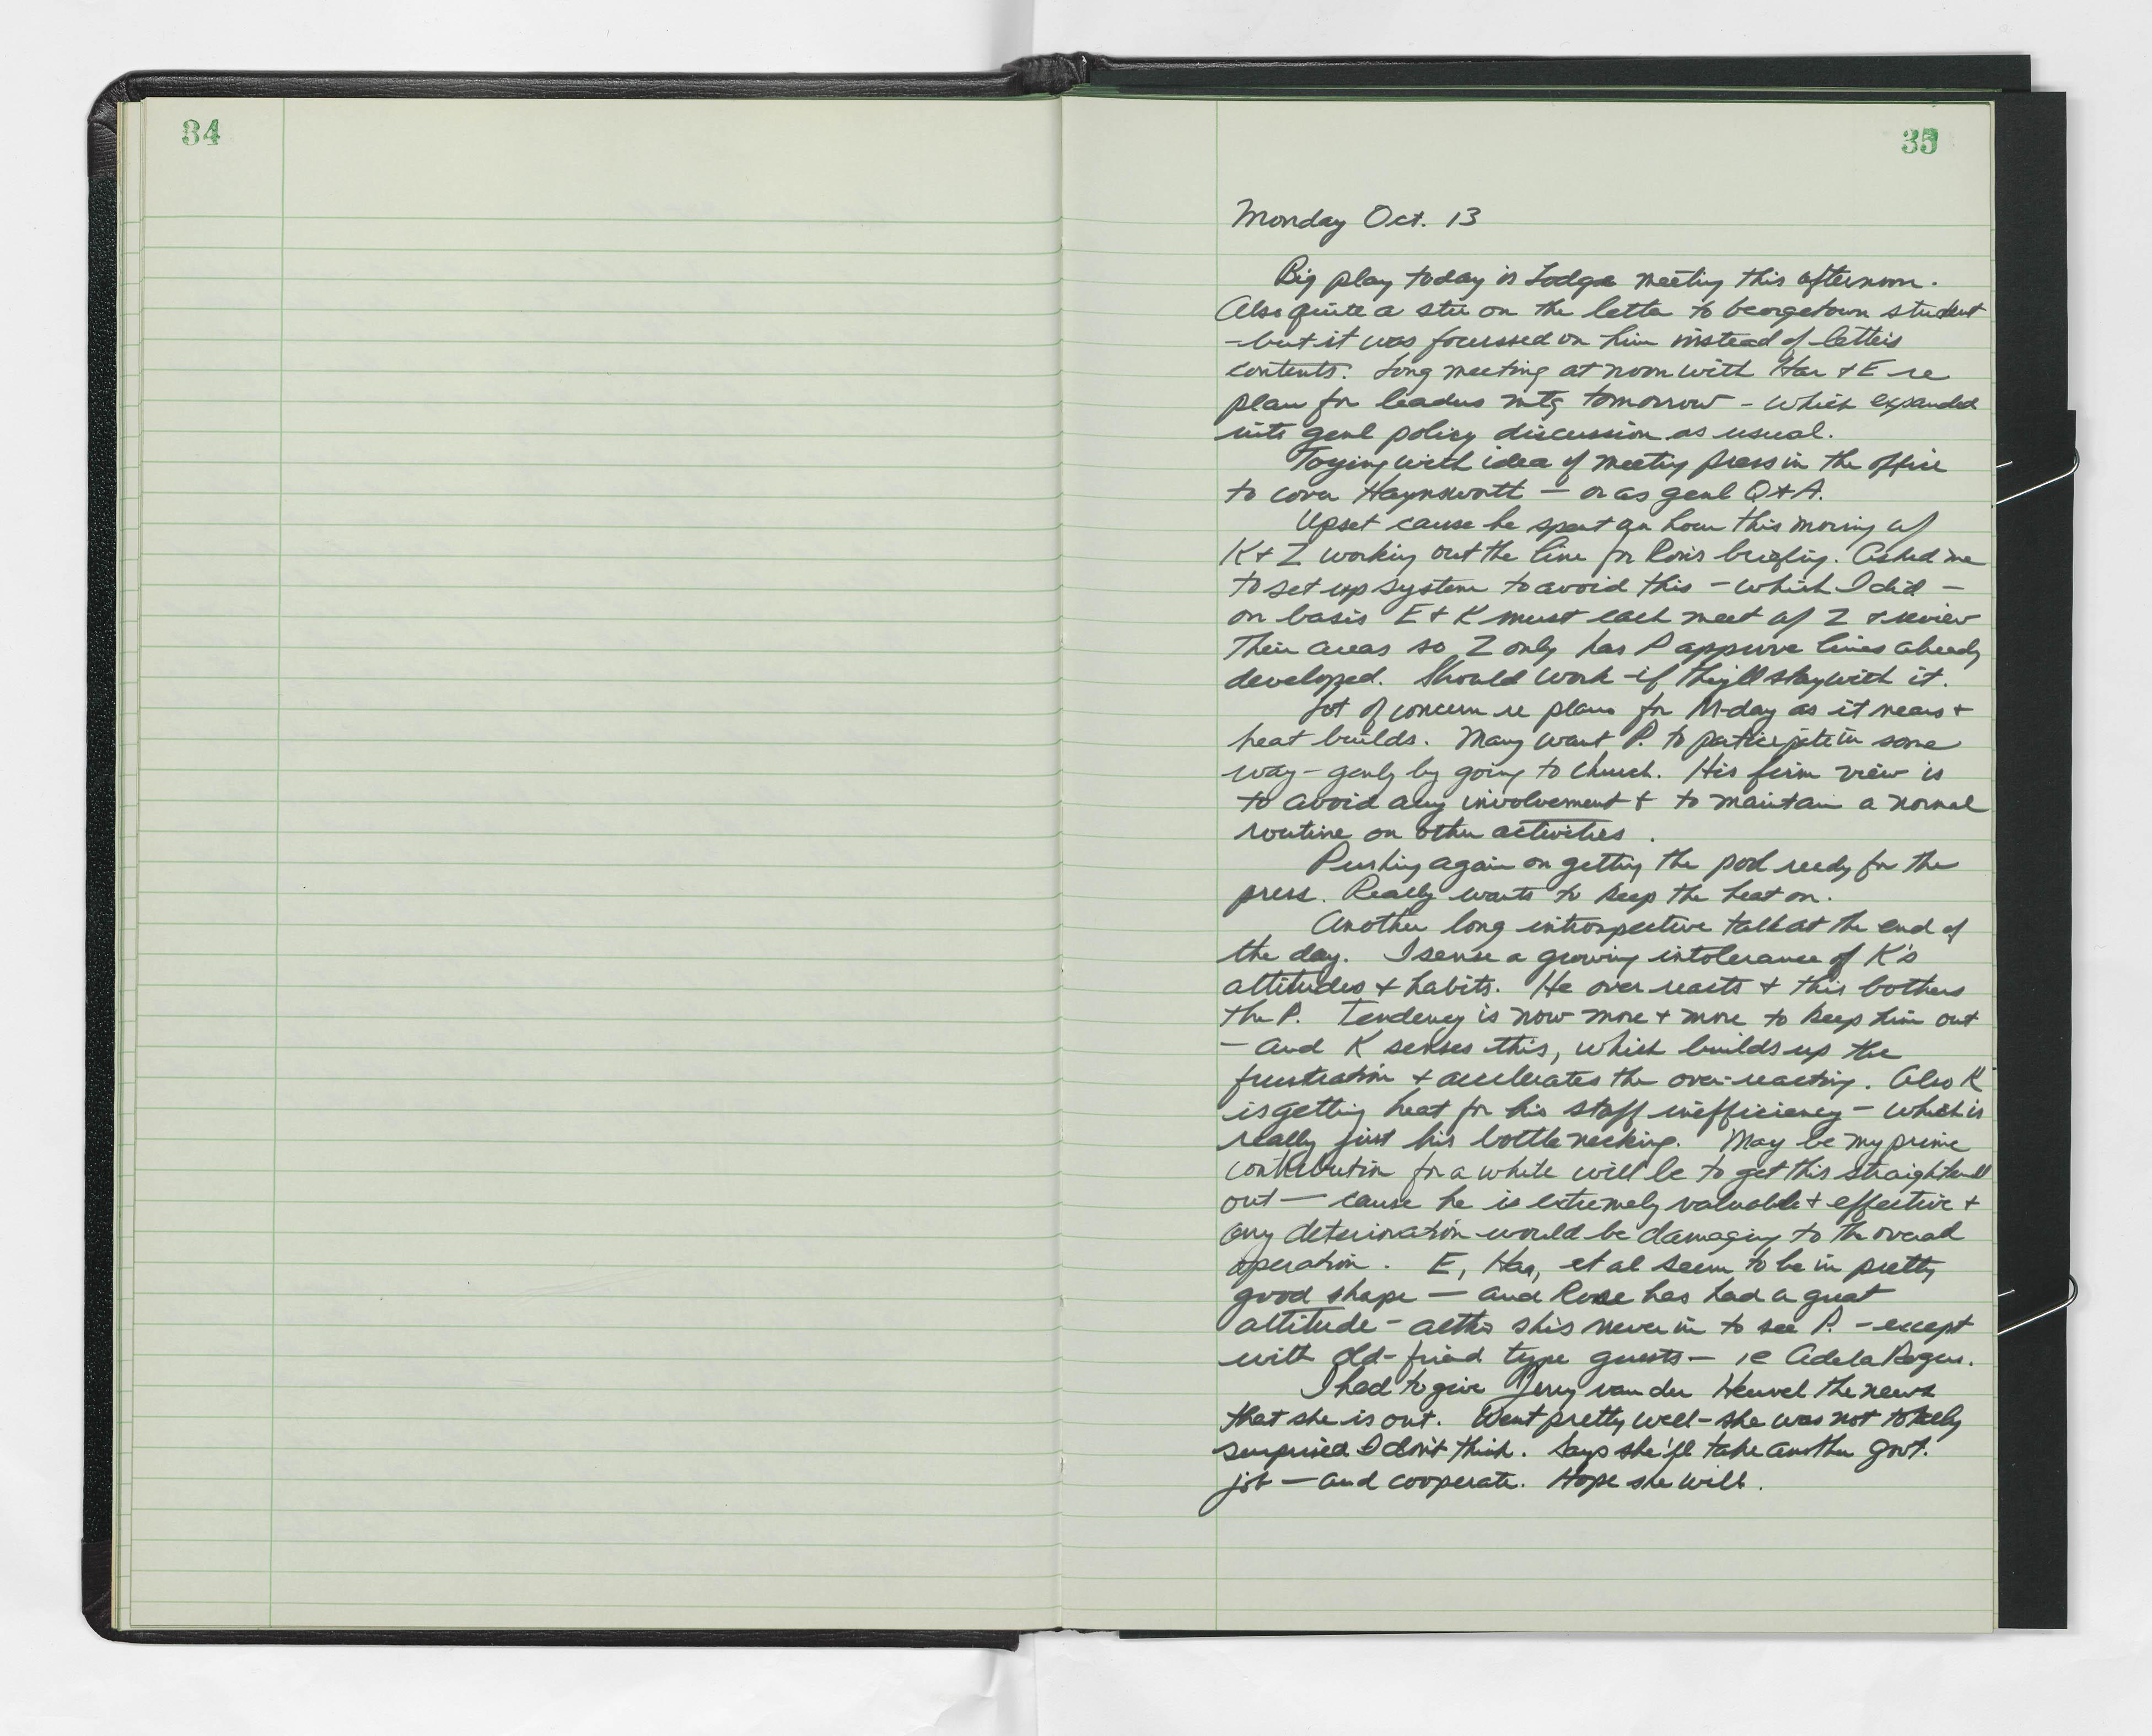 34
35
Monday Oct. 13
Big play today is Lodge meeting this afternoon.
Also quite a stir on the letter to Georgetown student
- but it was focussed on him instead of letter's
contents. Long meeting at noon with Har & E re
plan for leaders mtg tomorrow - which expanded
into genl policy discussion as usual.
Toying with idea of meeting press in the office
to cover Haynsworth — or as genl Q & A.
Upset cause he spent an hour this morning w/
K & Z working out the line for Ron's briefing. Asked me
to set up system to avoid this - which I did -
on basis E & K must each meet w/ Z & review
their areas so Z only has P approve lines already
developed. Should work - if they'll stay with it.
Lot of concern re plans for M-day as it nears &
heat builds. Many want P. to participate in some
way - genly by going to church. His firm view is
to avoid any involvement & to maintain a normal
routine on other activities.
Pushing again on getting the pool ready for the
press. Really wants to keep the heat on.
Another long introspective talk at the end of
the day. I sense a growing intolerance of K's
attitudes & habits. He over reacts & this bothers
the P. Tendency is now more & more to keep him out
— and K senses this, which builds up the
frustration & accelerates the over-reacting. Also K
is getting heat for his staff inefficiency - which is
really just his bottlenecking. May be my prime
contribution for a while will be to get this straightened
out — cause he is extremely valuable & effective &
any deterioration would be damaging to the overall
operation. E, Har, et al seem to be in pretty
good shape — and Rose has had a great
attitude - altho she's never in to see P. - except
with old-friend type guests — ie Adela Rogers.
I had to give Gerry van der Heuvel the news
that she is out. Went pretty well - she was not totally
surprised I don't think. Says she'll take another govt.
job — and cooperate. Hope she will.